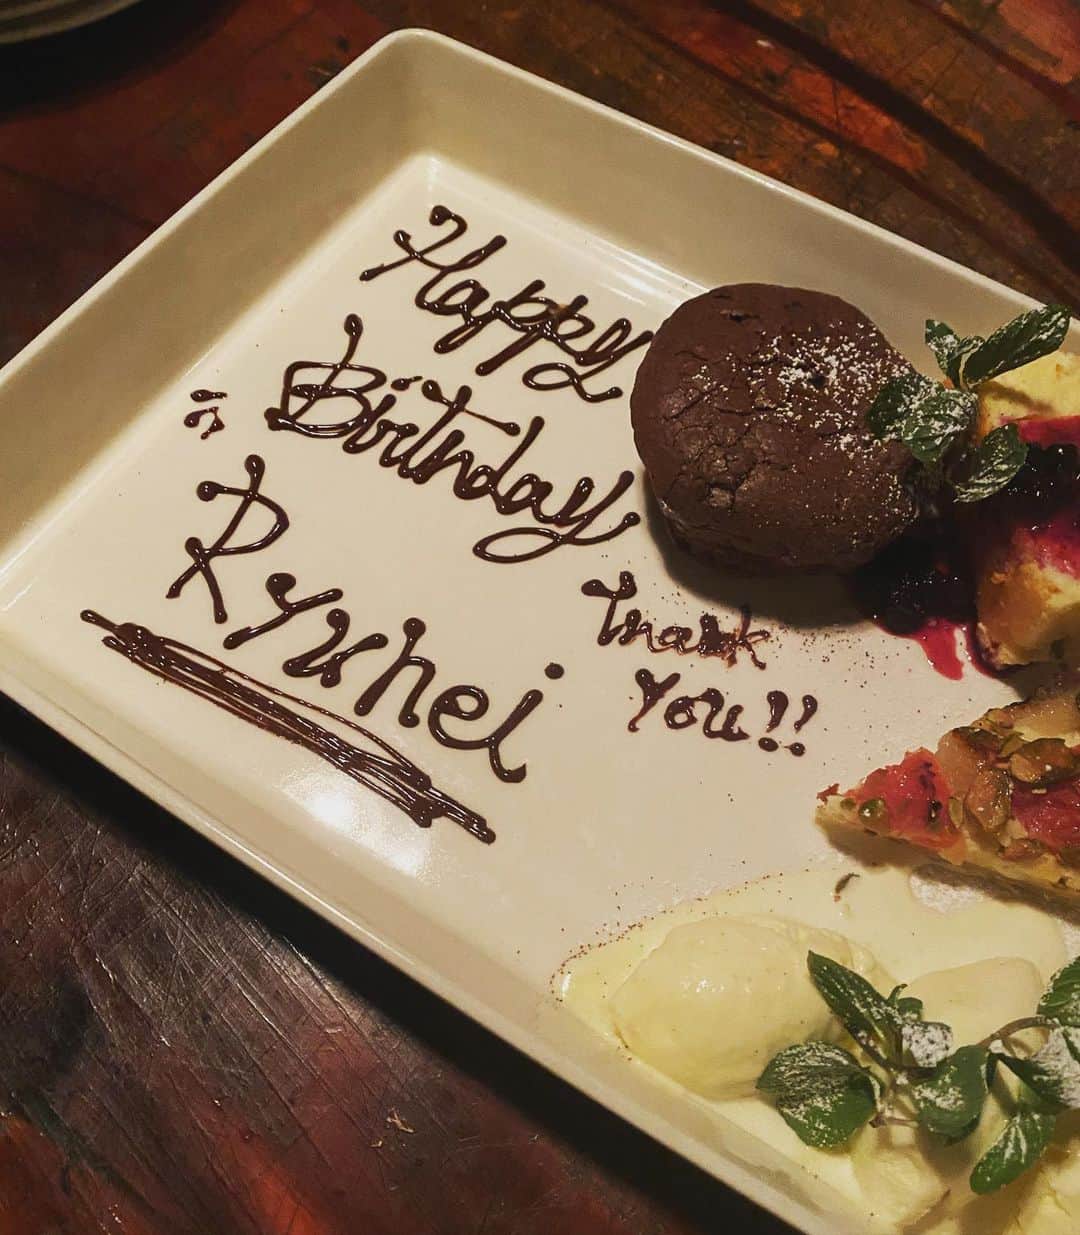 Happy
Birthday
Ryuhei
Thank
you!!